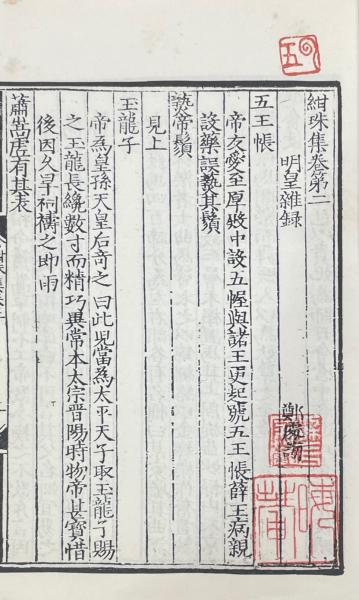 紺珠集卷第二
明皇雜錄
鄭處誨
五王帳
帝友愛至厚殿中設五幄與諸王更起號五王帳薛王病親
設藥誤爇其鬚
爇帝鬚
見上
玉龍子
帝為皇孫天皇后奇之曰此兒當為太平天子取玉龍子賜
之玉龍長纔數寸而精巧異常本太宗晉陽時物帝甚寶惜
後因久旱祠禱之即雨
蕭嵩虛有其表